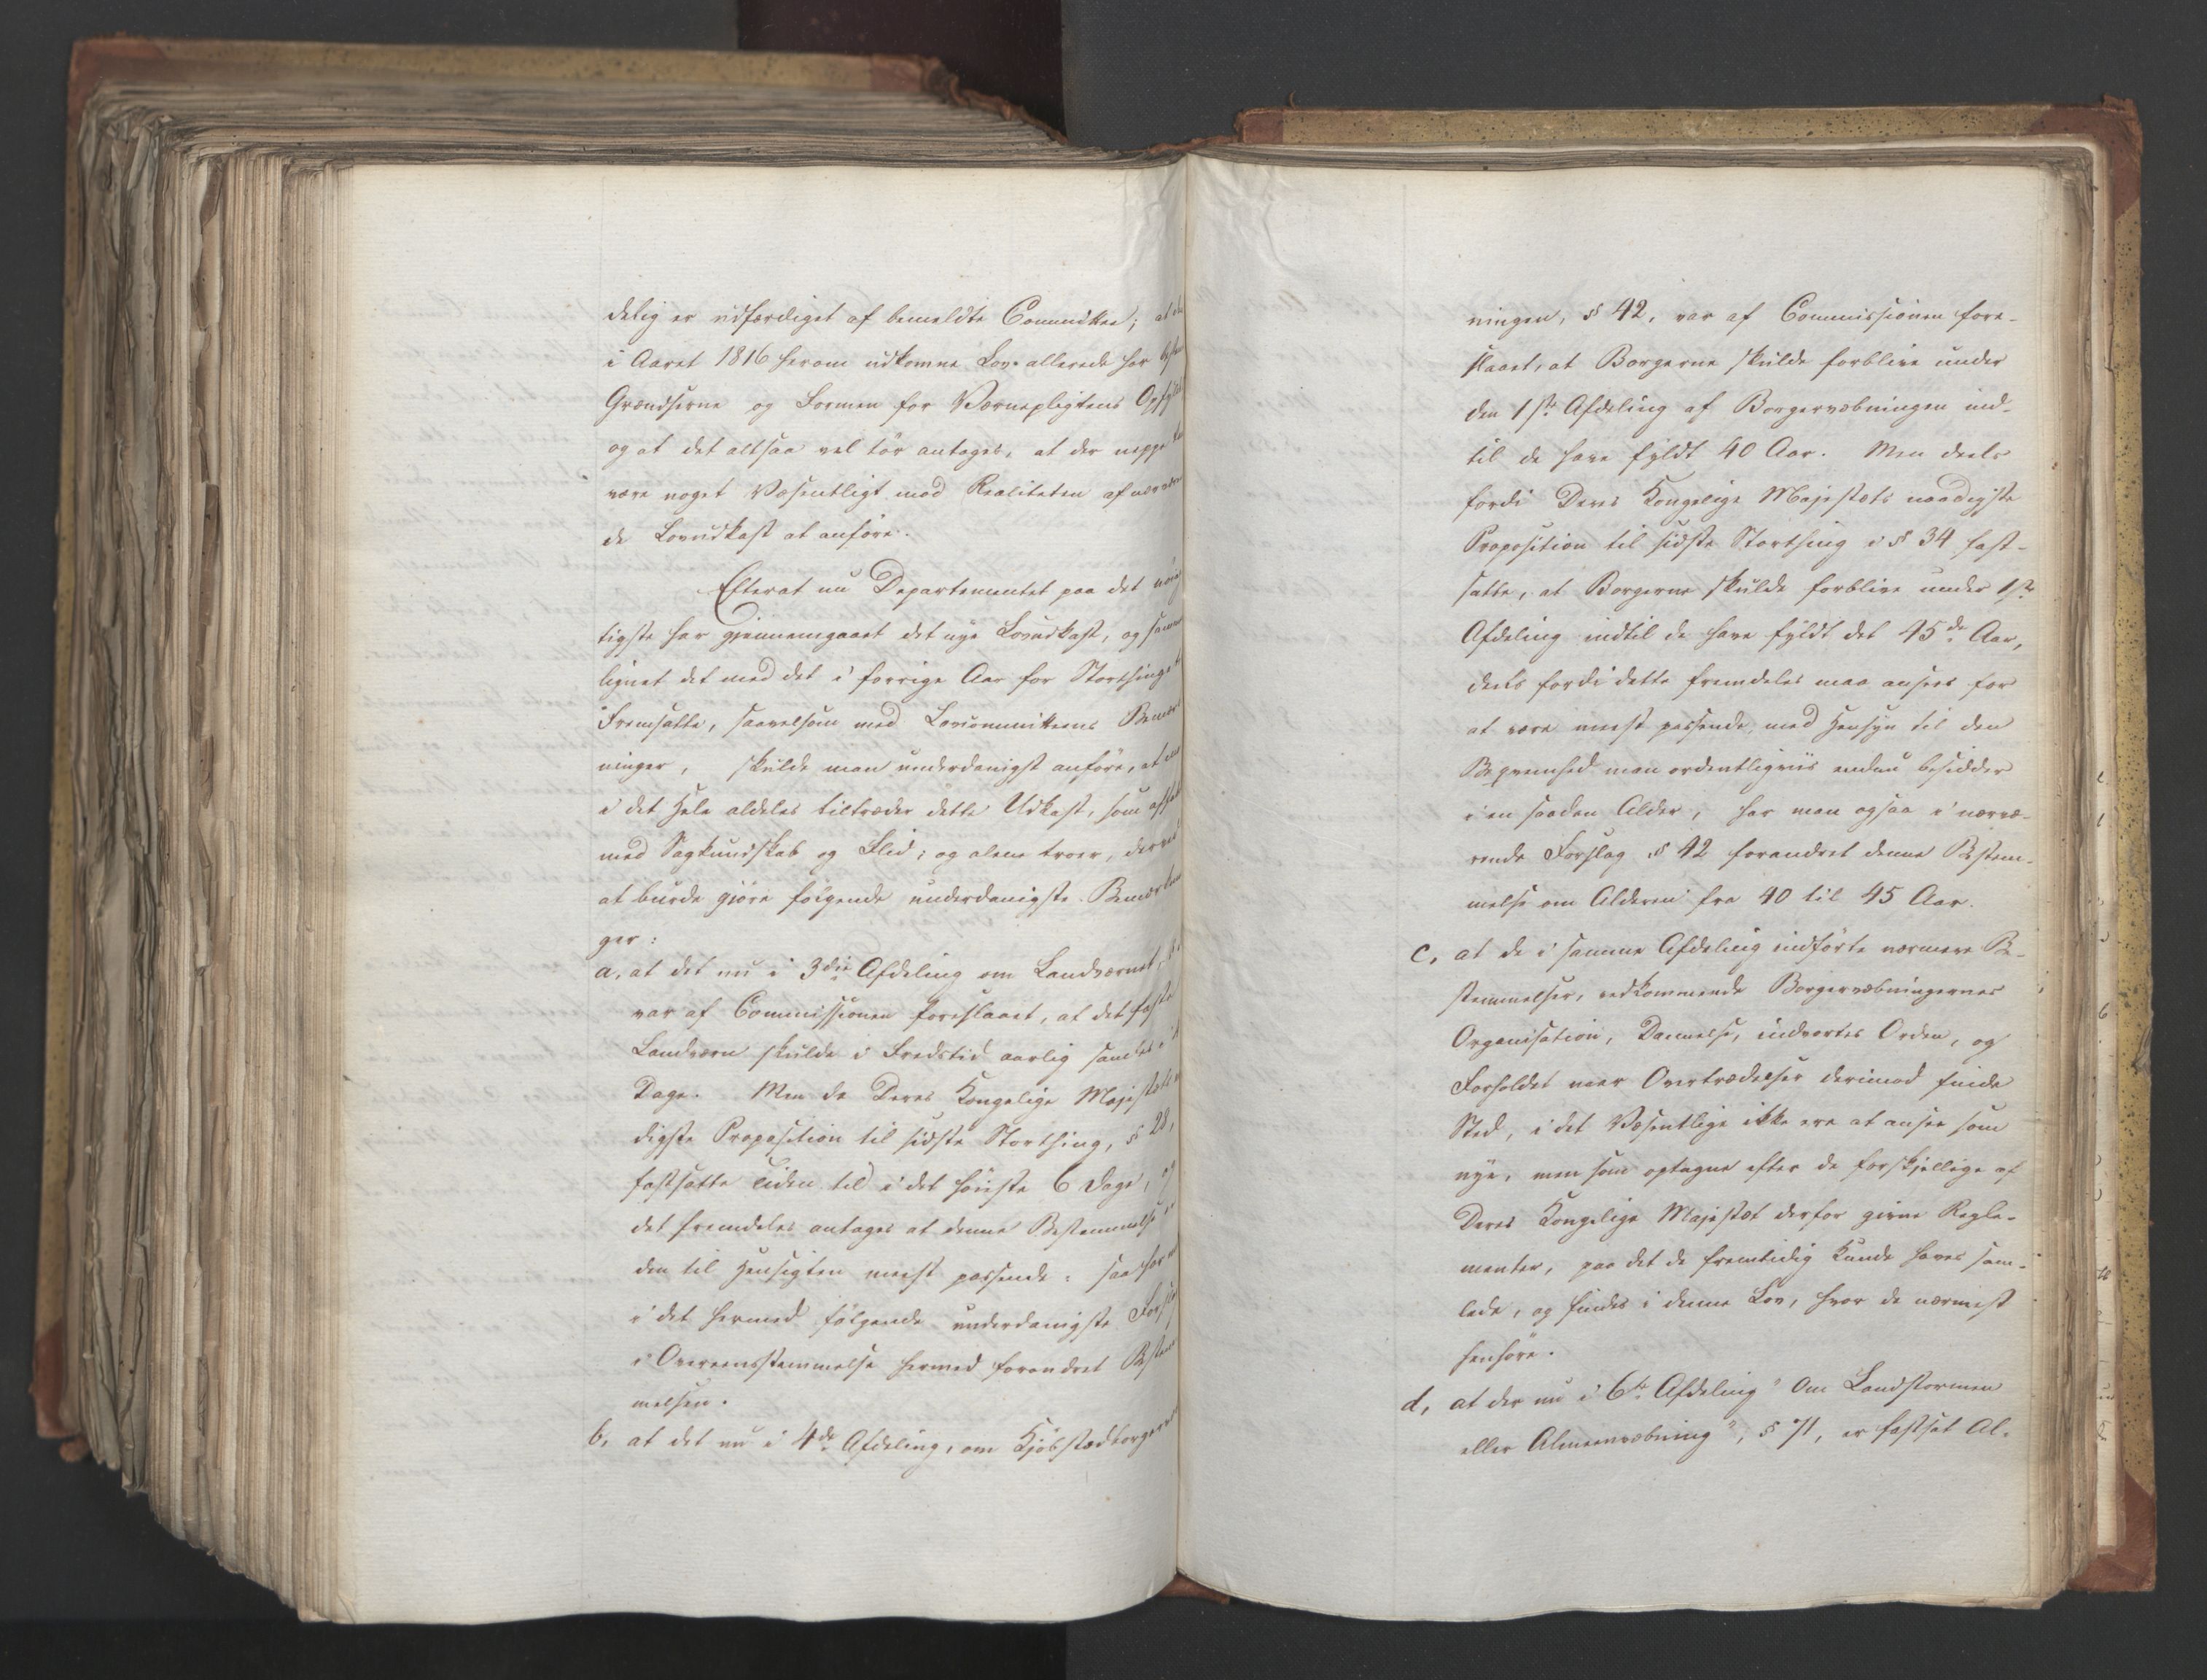 delig er udfærdiget af bemeldte Committee; at
i Aaret 1816 herom udkomne Lov allerede har
Grændserne og Formen for Værnepligtens
og at det altsaa vel tör antages, at der neppe
være noget Væsentligt mod Realiteten af nærværen
de Lovudkast at anföre.
Efterat nu Departementet paa det nöiag
tigste har gjennemgaaet det nye Lovudkast, og sammen
lignet det med det i forrige Aar for Storthinget
Fremsatte, saavelsom med Lovcommitteens Bemærk
ninger, skulde man underdanigst anföre, at man
i det Hele aldeles tiltræder dette Udkast, som affattet
med Sagkundskab og Flid; og alene troer, derved
at burde gjöre fölgende underdanigste Bemærknin
ger:
a, at det nu i 3die Afdeling om Landværnet,
var af Commissionen foreslaaet, at det faste
Landværn skulde i Fredstid aarlig samles i
Dage. Men da Deres Kongelige Majestæts
digste Proposition til sidste Storthing, § 28,
fastsatte Tiden til i det höieste 6 Dage, og
det fremdeles antages at denne Bestemmelse er
den til Hensigten meest passende: saa har man
i det hermed fölgende underdanigste Forslag
i Overeensstemmelse hermed forandret Bestem
melsen.
b, at det nu i 4de Afdeling, om Kjöbstædborgervæb
ningen, § 42, var af Commissionen fore-
slaaet, at Borgerne skulde forblive under
den 1ste Afdeling af Borgervæbningen ind-
til de have fyldt 40 Aar. Men deels
fordi Deres Kongelige Majestæts naadigste
Proposition til sidste Storthing i § 34 fast-
satte, at Borgerne skulde forblive under 1ste
Afdeling indtil de have fyldt det 45de Aar,
deels fordi dette fremdeles maa ansees for
at være meest passende, med Hensyn til den
Beqvemhed man ordentligviis endnu besidder
i en saadan Alder, har man ogsaa i nærvæ-
rende Forslag § 42 forandret denne Bestem-
melse om Alderen fra 40 til 45 Aar.
c, at de i samme Afdeling indförte nærmere Be-
stemmelser, vedkommende Borgervæbningernes
Organisation, Dannelse, indvortes Orden, og
Forholdet naar Overtrædelser derimod finde
Sted, i det Væsentlige ikke ere at ansee som
nye, men som optagne efter de forskjellige af
Deres Kongelige Majestæt derfor givne Regle-
menter, paa det de fremtidig kunde haves sam-
lede, og findes i denne Lov, hvor de nærmest
henhöre.
d, at der nu i 6te Afdeling "Om Landstormen
eller Almeenvæbning", § 71, er fastsat Al-